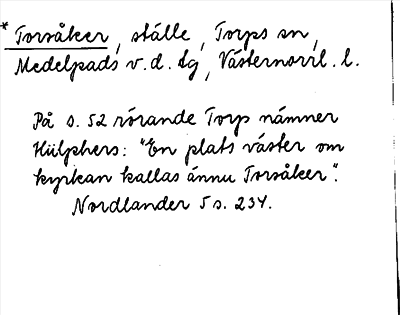 * Torsåker, ställe, Torps sn,
Medelpads v. d. tg, Västernorrl. l.
På s. 52 rörande Torp nämner
Hülphers: "En plats väster om
kyrkan kallas ännu Torsåker".
Nordlander 5 s. 234.